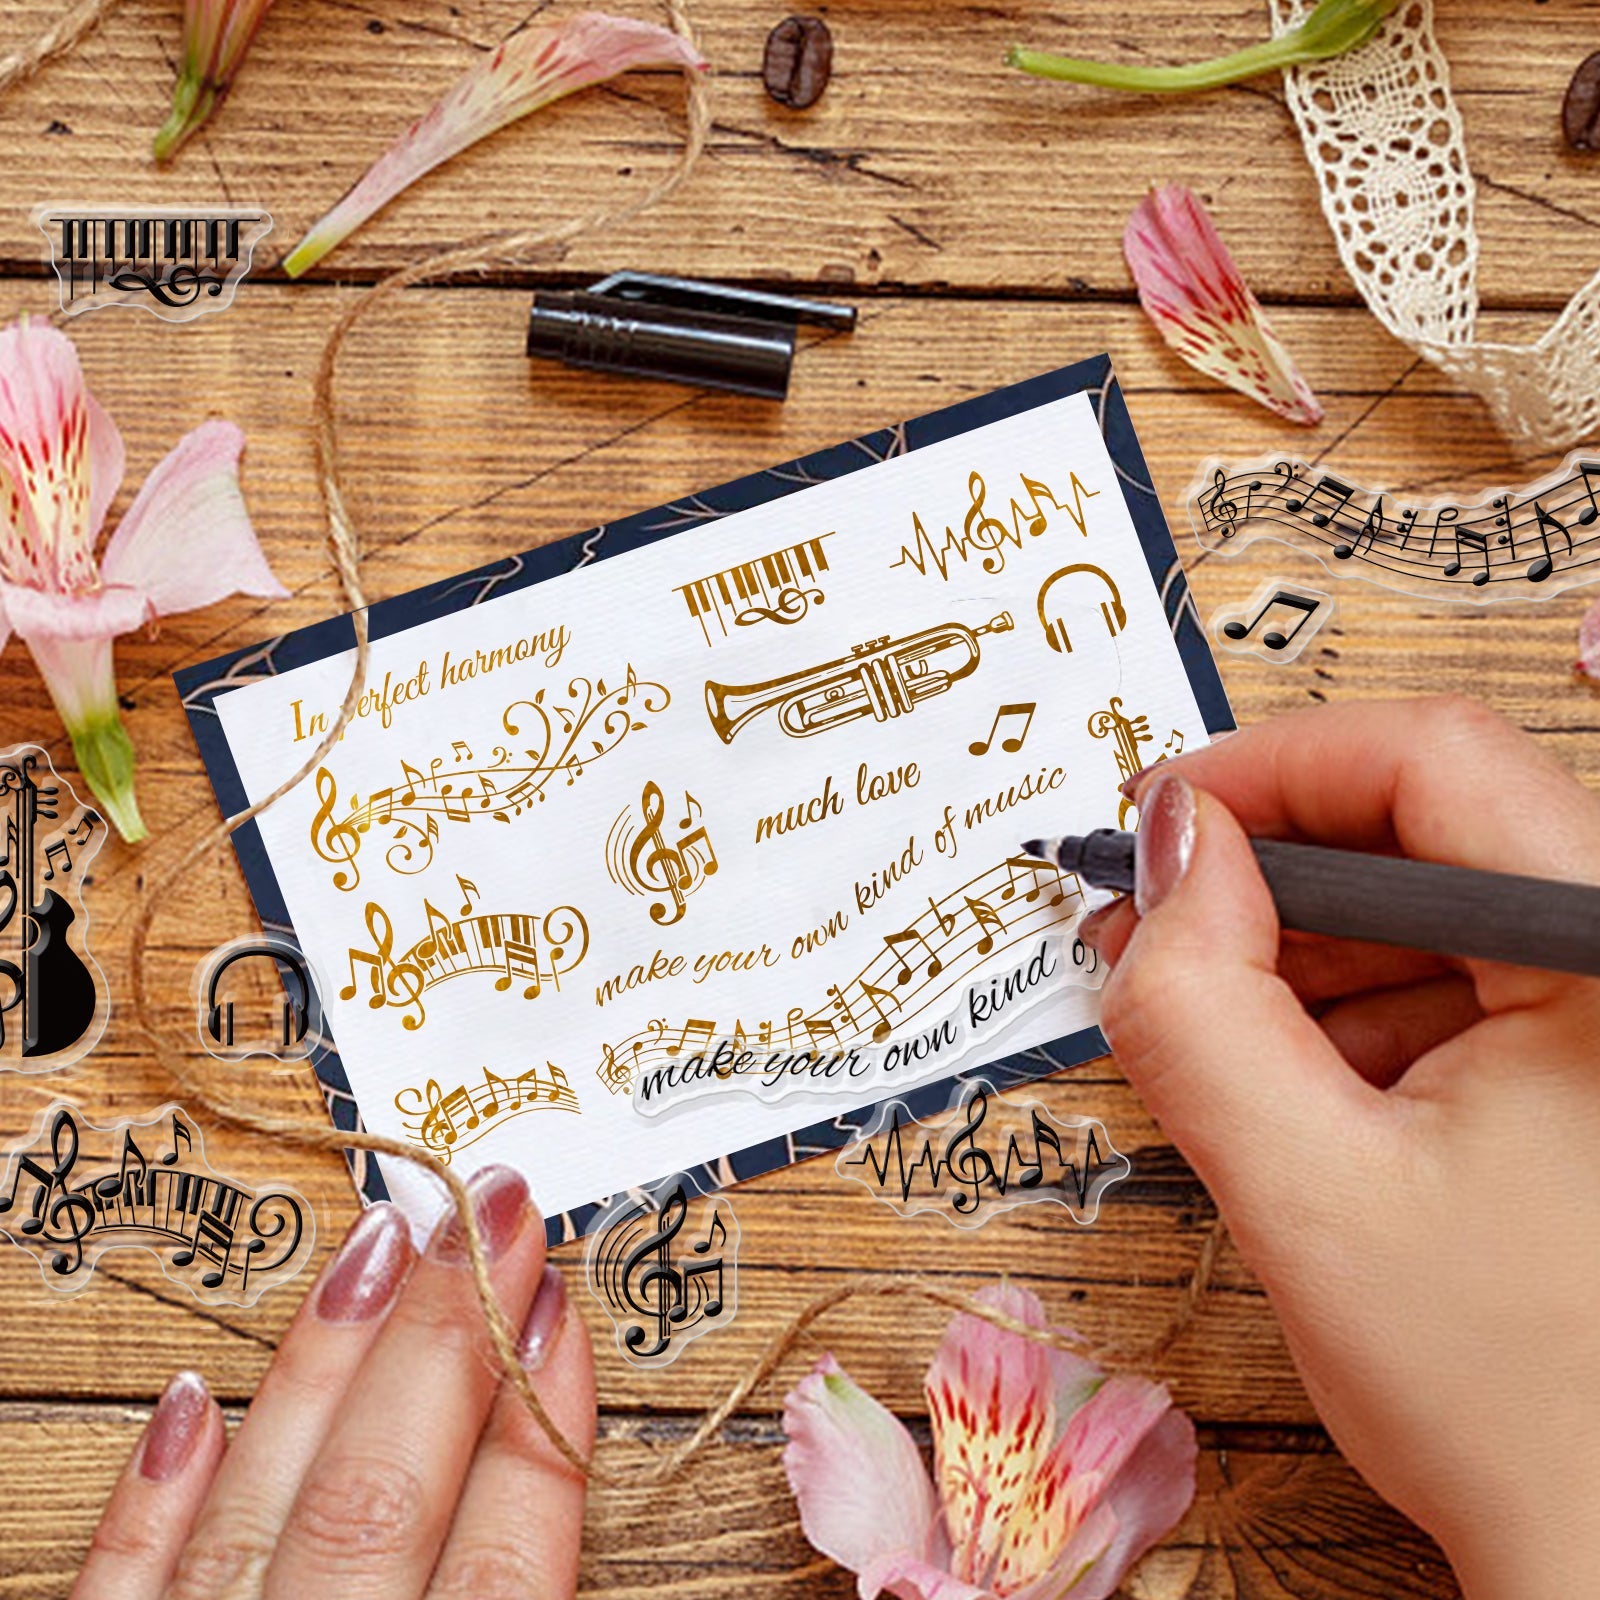 In perfect harmony
much love
make your own kind of music
make your own kind